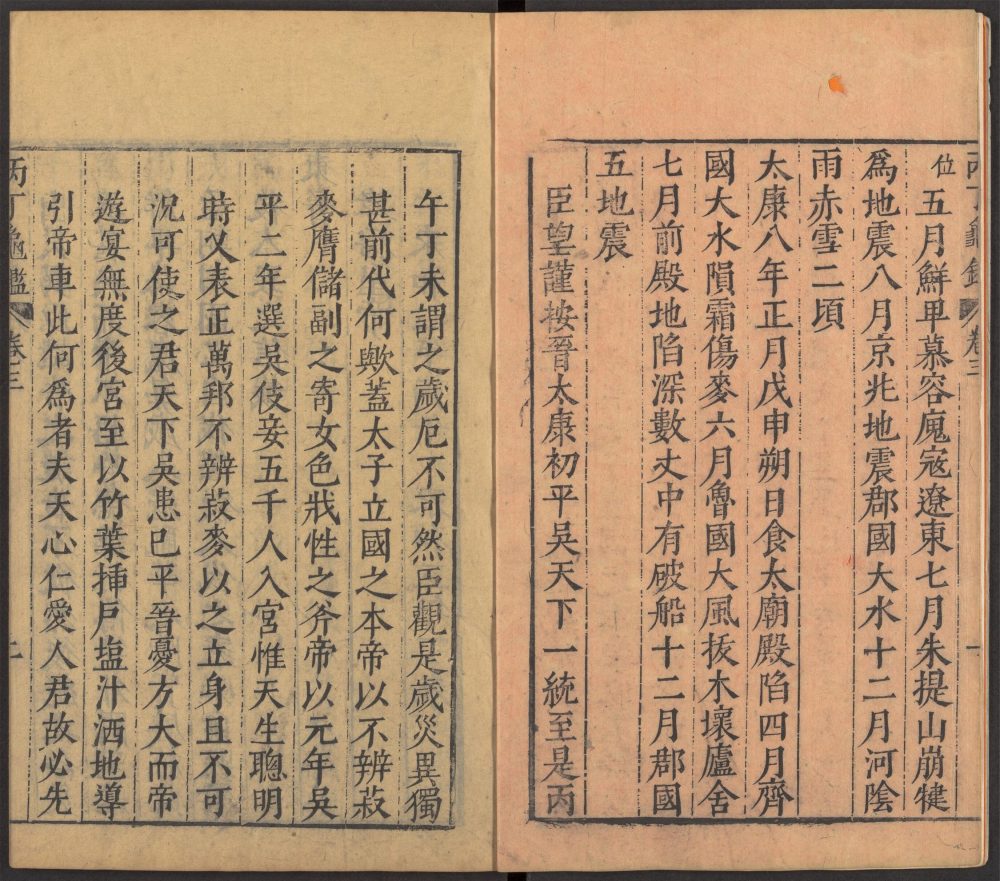 丙丁龜鑑 卷三 一
位 五月鮮卑慕容廆寇遼東七月朱提山崩犍
爲地震八月京兆地震郡國大水十二月河陰
雨赤雪二頃
太康八年正月戊申朔日食太廟殿陷四月齊
國大水隕霜傷麥六月魯國大風拔木壞廬舍
七月前殿地陷深數丈中有破船十二月郡國
五地震
臣望謹按晉太康初平吳天下一統至是丙
午丁未謂之歲厄不可然臣觀是歲災異獨
甚前代何歟蓋太子立國之本帝以不辨菽
麥膺儲副之寄女色戕性之斧帝以元年吳
平二年選吳伎妾五千人入宮惟天生聰明
時乂表正萬邦不辨菽麥以之立身且不可
況可使之君天下吳患已平晉憂方大而帝
遊宴無度後宮至以竹葉揷戶塩汁洒地導
引帝車此何爲者夫天心仁愛人君故必先
丙丁龜鑑 卷三 二